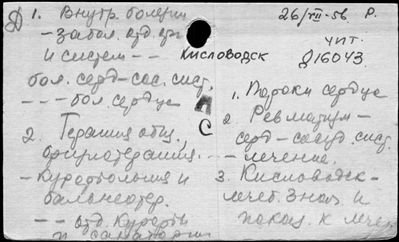 Д 1. Внутр. болезни
– забол. отд. орг.
и систем – –
бол. серд–сос. сист.
– – – бол. сердца
2. Терапия общ.
физиотерапия.
– Курортология и
бальнеотер.
– – отд. Курорты
и санатории
26/VII–56. Р.
чит.
Д16043
Кисловодск
Л
С
1. Пороки сердца
2. Ревматизм –
серд–сосуд. сист.
– лечение.
3. Кисловодск –
лечеб. знач. и
показ. к леч